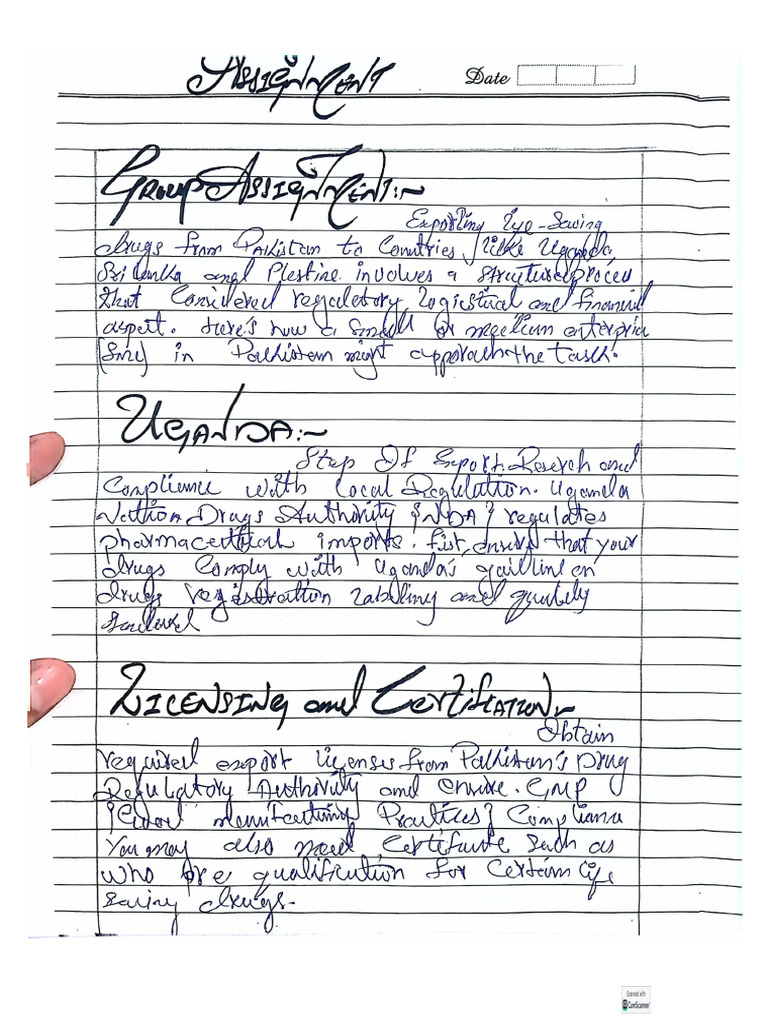 Assignment
Date
Group Assignment:~
Exporting Lye-Saving
drugs from Pakistan to Countries like Uganda
Sri Lanka and Plestine involves a structured proces
that Considered regulatory logistical and financial
aspect. Here's how a small or medium enterprise
(Sme) in Pakistan might apporach the task.
UGANDA:~
Step Of Export. Reserch and
Compliance with Local Regulation. Uganda
Nation Drugs Authority {NDA} regulates
pharmacertical imports. first, ensure that your
drugs Comply with Uganda's on
drugs registration labling and
LICENSING and CERTIFICATION:~
Obtain
required export licenses from Pakistan's Drug
Regulatory Authority and ensure. GMP
Manufacturing Practices} Compliance
You may also need Certificate such as
who pre qualification for Certain life
saving drugs.
Scanned with
CamScanner